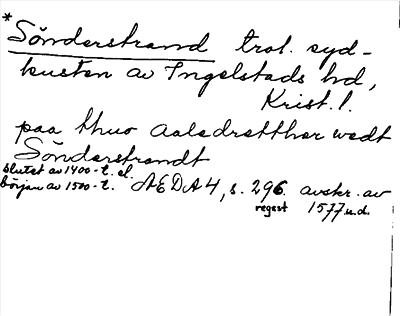 *Sönderstrand trol. syd-
kusten av Ingelstads hd,
Krist. l.
paa thuo Aaledretther wedt
Sönderstrandt
slutet av 1400-t. el.
början av 1500-t. ÆDA 4, s. 296. avskr. av
regest 1577 u.d.